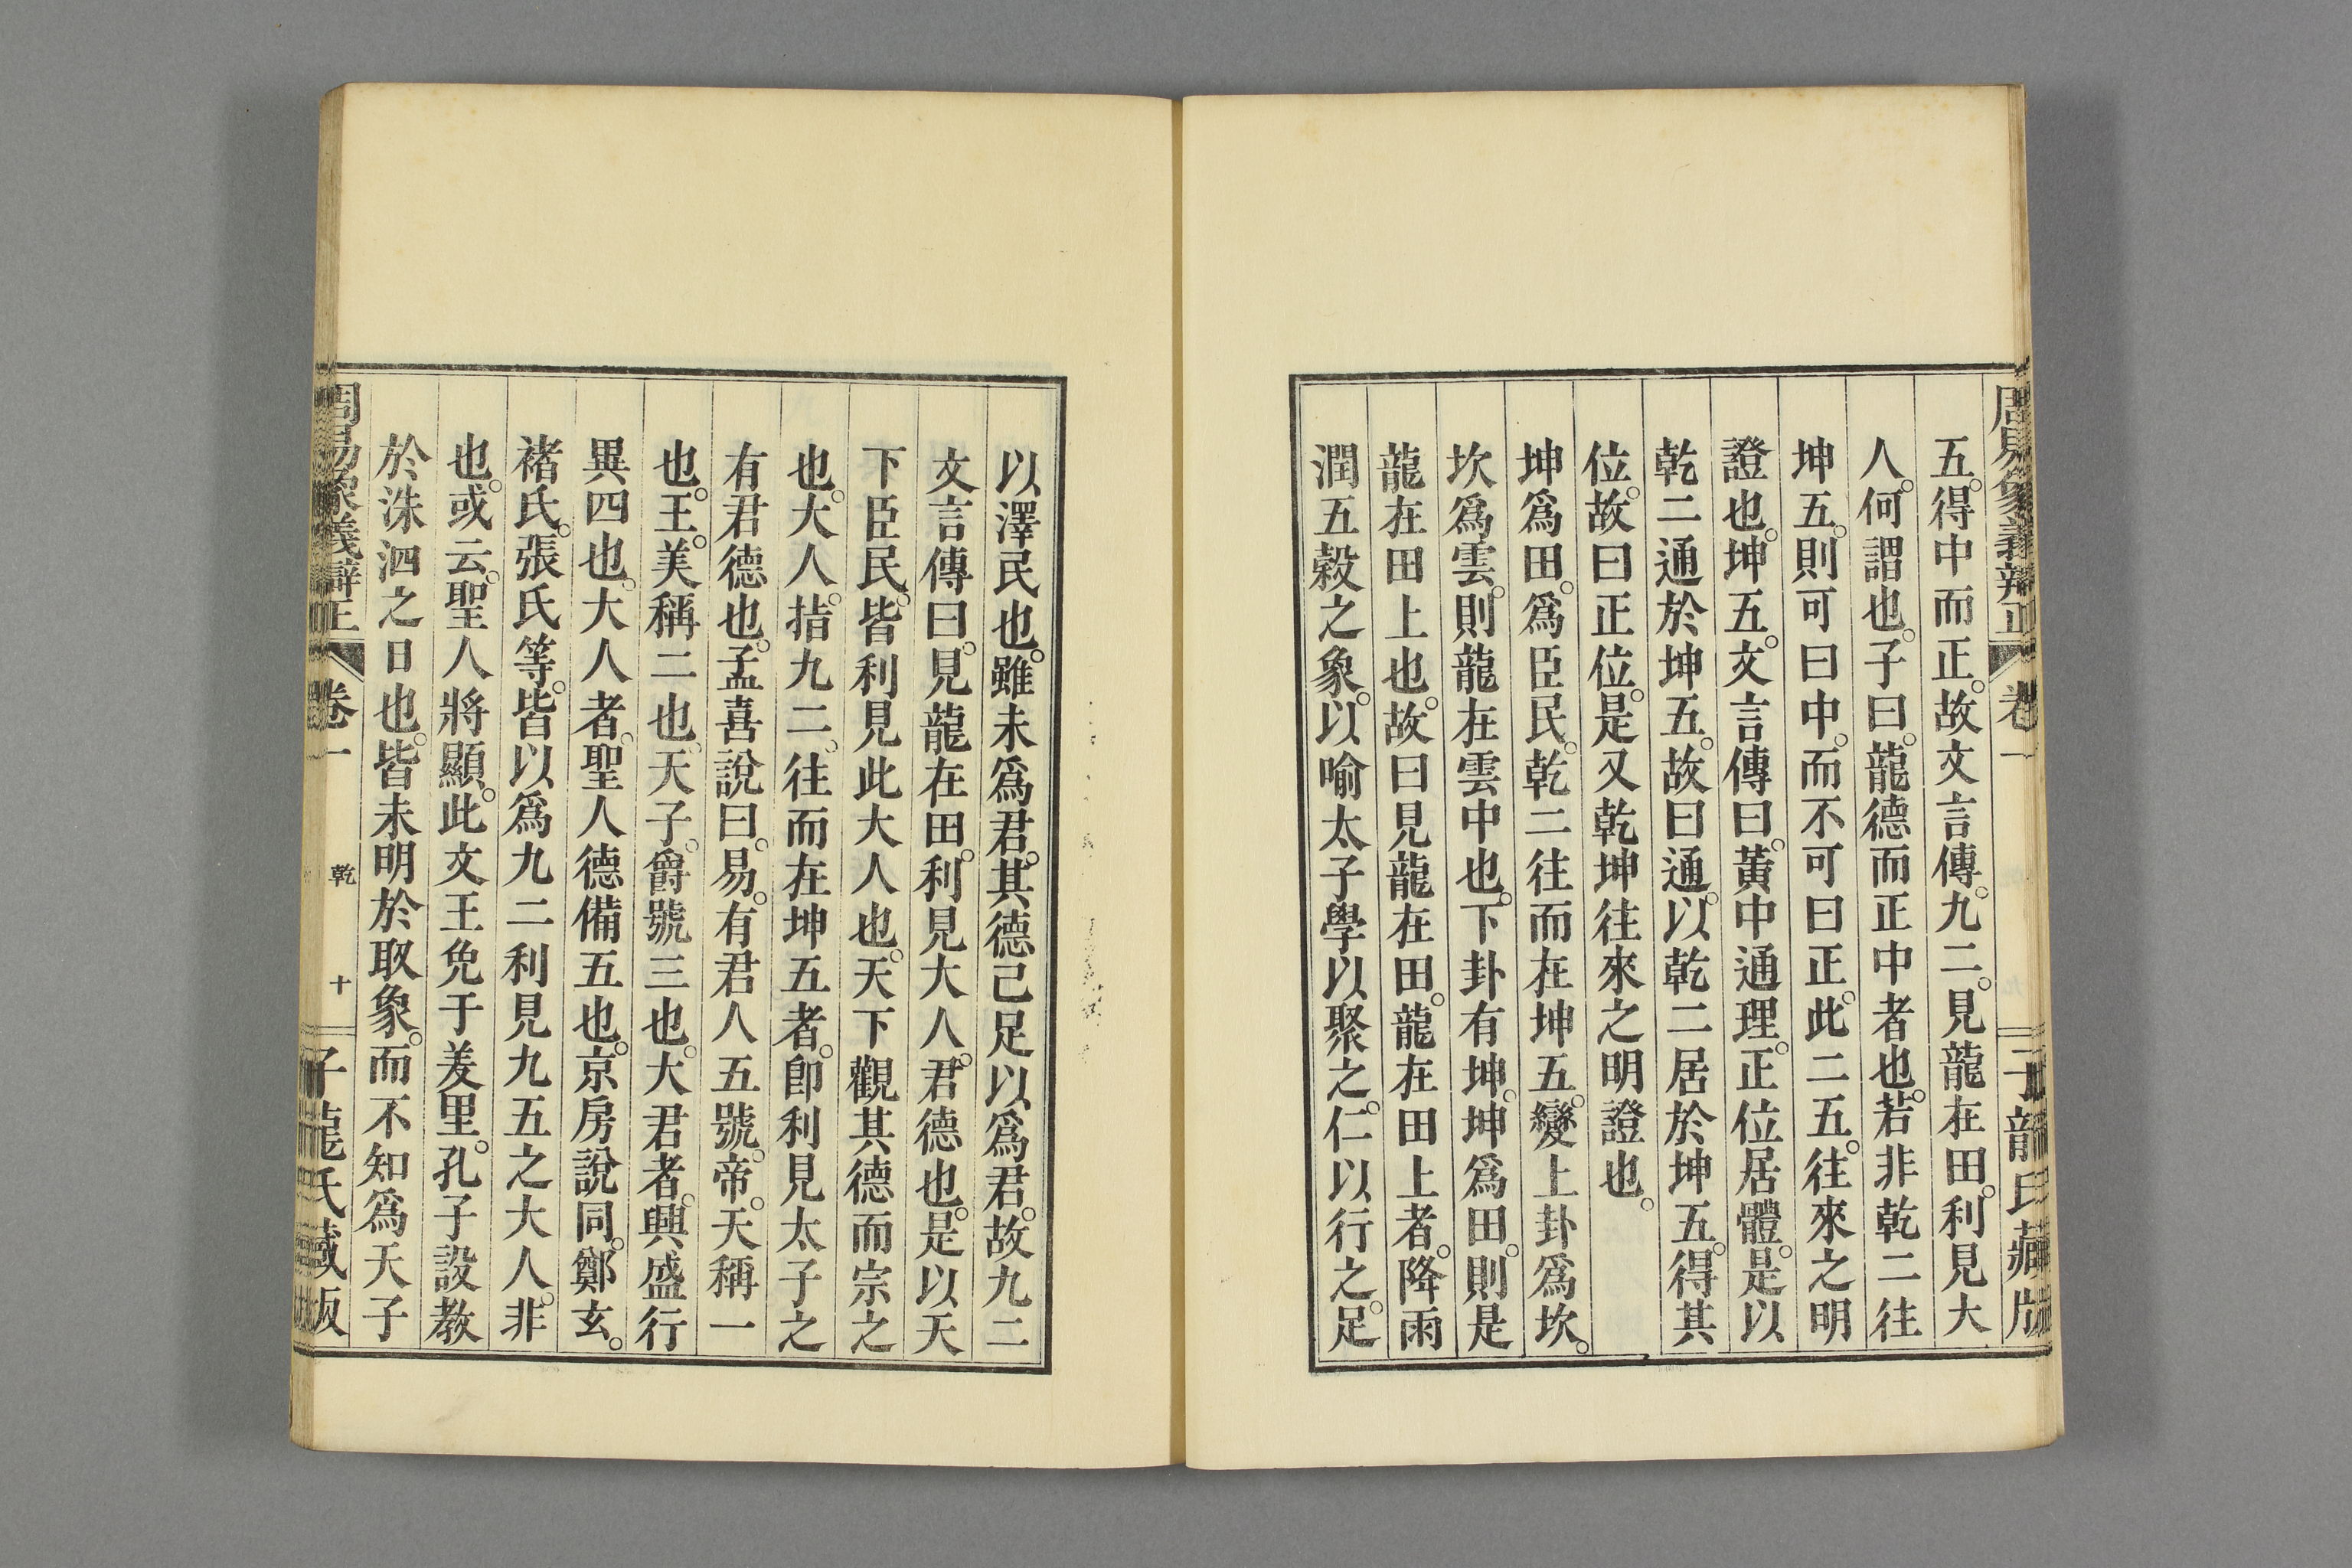 周易象義辯正 卷一 子龍氏藏版
五。得中而正。故文言傳。九二。見龍在田。利見大
人。何謂也。子曰。龍德而正中者也。若非乾二往
坤五。則可曰中。而不可曰正。此二五。往來之明
證也。坤五。文言傳曰。黃中通理。正位居體。是以
乾二通於坤五。故曰通。以乾二居於坤五。得其
位。故曰正位。是又乾坤往來之明證也。
坤爲田。爲臣民。乾二往而在坤五。變上卦爲坎。
坎爲雲。則龍在雲中也。下卦有坤。坤爲田。則是
龍在田上也。故曰見龍在田。龍在田上者。降雨
潤五穀之象。以喻太子學以聚之。仁以行之。足
以澤民也。雖未爲君。其德己足以爲君。故九二
文言傳曰。見龍在田。利見大人。君德也。是以天
下臣民。皆利見此大人也。天下觀其德而宗之
也。大人。指九二。往而在坤五者。卽利見太子之
有君德也。孟喜說曰。易。有君人五號。帝。天稱一
也。王。美稱二也。天子。爵號三也。大君者。興盛行
異四也。大人者。聖人德備五也。京房說同。鄭玄。
褚氏。張氏等。皆以爲九二利見九五之大人。非
也。或云。聖人將顯。此文王免于羑里。孔子設教
於洙泗之日也。皆未明於取象。而不知爲天子
周易象義辯正 卷一 乾 十 子龍氏藏版